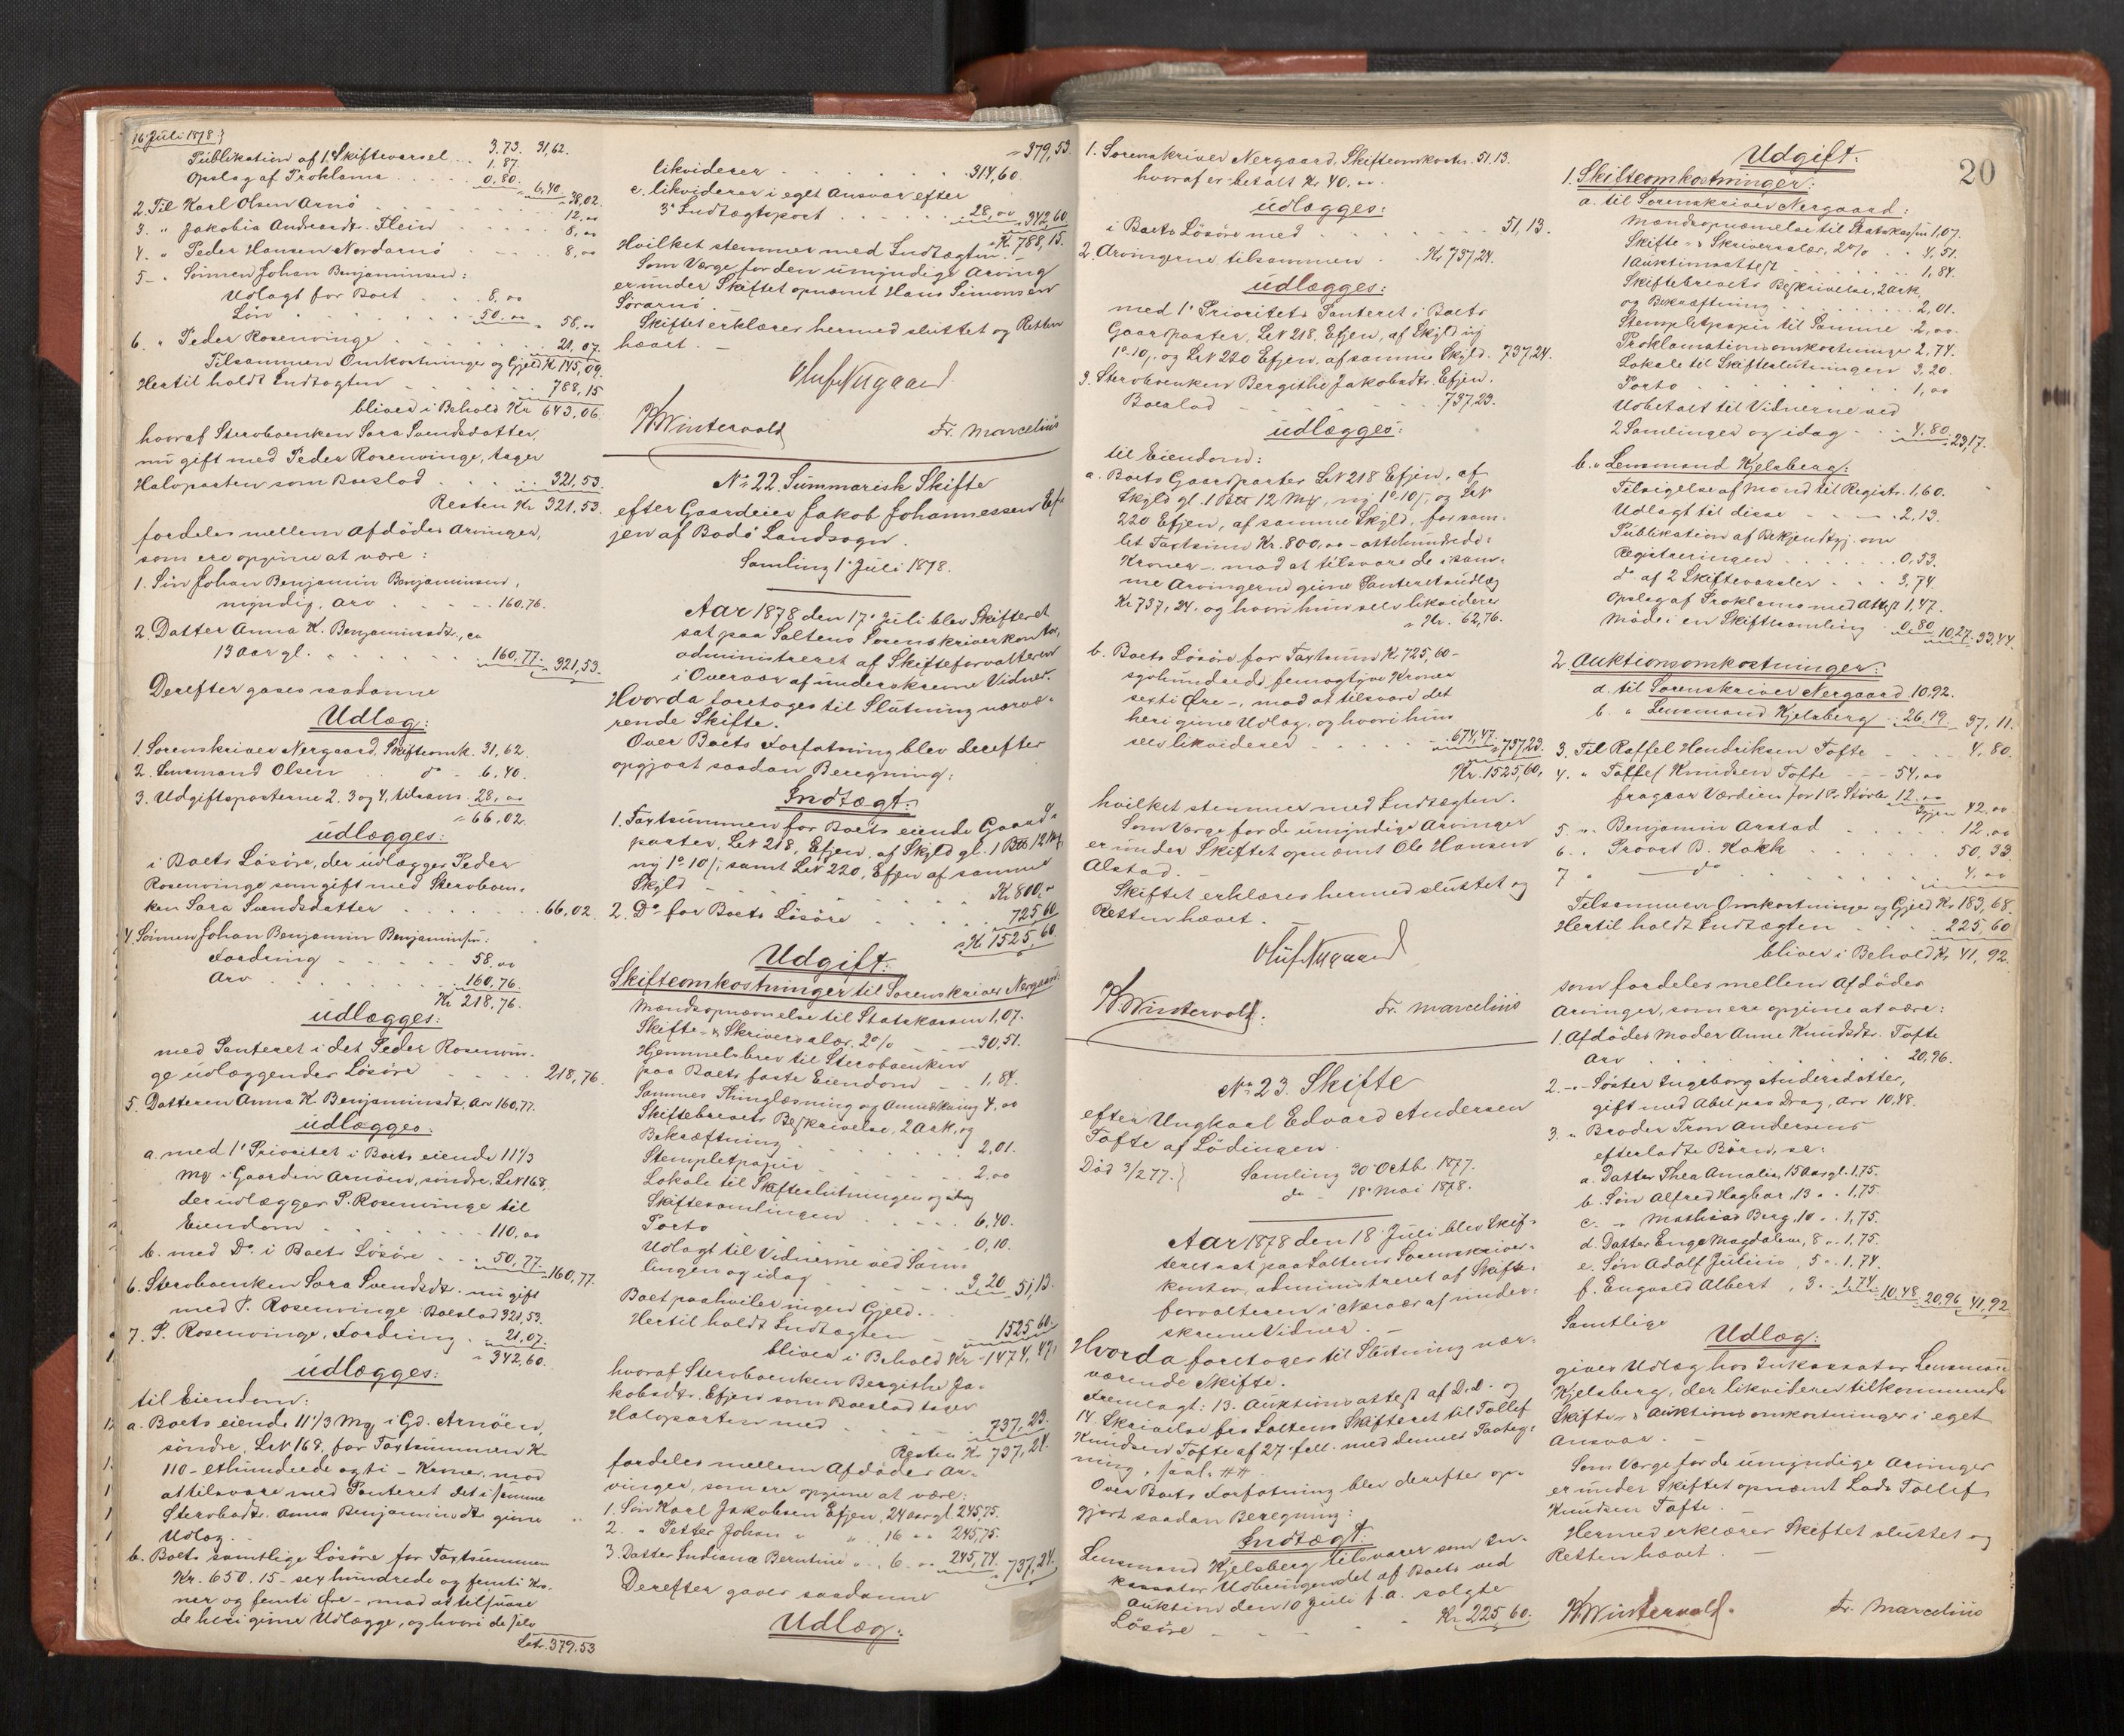 16 Juli 1878.}
Publikation af 1 Skiftevarsel . . 3.73. 31,62.
Opslag af Proklama . . . 1.87.
0,80. " 6,40. " 38,02.
2. Til Karl Olsen Arnö . . . 12,00
3. " Jakobia Andreasdtr. Flein . . . 8,00
4. " Peder Hansen Nordarnö . . . 8,00
5 - " Sönnen Johan Benjaminsen:
Udlagt for Boet . . . 8,00
Lön . . . 50,00 " 58,00
6. " Peder Rosenvinge . . . 21,07.
Tilsammen Omkostninger og Gjeld Kr 145,09.
Hertil holdt Indtægten . . . 788,15
bliver i Behold Kr 643,06.
hvoraf Sterboenken Sara Svendsdatter,
nu gift med Peder Rosenvinge, tager
Halvparten som Boeslod . . . 321,53.
Resten Kr 321,53.
fordeles mellem Afdödes Arvinger,
som ere opgivne at være:
1. Sön Johan Benjamin Benjaminsen,
myndig, Arv . . . 160,76.
2. Datter Anna K. Benjaminsdtr., ca
13 Aar gl. . . . 160,77. " 321,53.
Derefter gaves saadanne
Udlæg:
1. Sorenskriver Nergaard, Skifteomk. 31,62.
2. Lensmand Olsen . . do - 6,40.
3. Udgiftsposterne 2. 3 og 4, tilsam. 28,00
" 66,02.
udlægges:
i Boets Lösöre, der udlægges Peder
Rosenvinge som gift med Sterboen-
ken Sara Svendsdatter . . . 66,02.
4. Sönnen Johan Benjamin Benjaminsen:
Fordring . . . 58,00
Arv . . . 160,76.
Kr 218,76.
udlægges:
med Panteret i det Peder Rosenvin-
ge udlæggendes Lösöre . . . 218,76.
5. Datteren Anna K. Benjaminsdt, Arv 160,77.
udlægges:
a. med 1ste Prioritet i Boets eiende 11 1/3
Mkg i Gaarden Arnöen, söndre, LN 168,
der udlægges P. Rosenvinge til
Eiendom . . . 110,00
b. med Do. i Boets Lösöre . . . 50,77. " 160,77.
6. Sterboenken Sara Svendsdt. nu gift
med P. Rosenvinge Boeslod 321,53.
7. P. Rosenvinge, Fordring . . 21,07.
" 342,60.
udlægges:
til Eiendom:
a. Boets eiende 11 1/3 Mkg i Gd. Arnöen,
söndre, LN 168, for Taxtsummen Kr
110 - Ethundrede og ti - Kroner, mod
at tilsvare med Panteret det i samme
Sterbodtr. Anna Benjaminsdtr givne
Udlæg. -
b. Boets samtlige Lösöre for Taxtsummen
Kr. 650.15 - sex hundrede og femti Kro-
ner og femti Öre -, mod at tilsvare
de heri givne Udlægge, og hvori de selv
Lat. 379.53
" 379,53.
likviderer . . . 314,60.
c. likviderer i eget Ansvar efter
3die Indtægtspost . . . 28,00 " 342,60.
" Kr 788,15.
Hvilket stemmer med Indtægten.
Som Værge for den umyndige Arving
er under Skiftet opnævnt Hans Simonsen
Sörarnö.
Skiftet erklæres hermed sluttet og Retten
hævet. -
Oluf Nergaard
W Wintervold Fr. Marcelius
No 22. Summarisk Skifte
efter Gaardeier Jakob Johannessen Ef-
jen af Bodö Landsogn.
Samling 1ste Juli 1878.
Aar 1878 den 17de Juli blev Skifteret
sat paa Saltens Sorenskriverkontor,
administreret af Skifteforvalteren
i Overvær af underskrevne Vidner.
Hvorda foretoges til Slutning nærvæ-
rende Skifte.
Over Boets Forfatning blev derefter
opgjort saadan Beregning:
Indtægt:
1. Taxtsummen for Boets eiende Gaard-
parter, LN 218, Efjen, af Skyld gl. 1 Bts 12 Mkg,
ny 1 o 10 s, samt LN 220, Efjen af samme
Skyld . . . Kr 800,00
2. Do. for Boets Lösöre . . . 725 60
" Kr 1525,60.
Udgift:
Skifteomkostninger til Sorenskriver Nergaard:
Mandsopnævnelse til Statskassen 1,07.
Skifte- & Skriversalær, 2% . . 30,51.
Hjemmelsbrev til Sterboenken
paa Boets faste Eiendom . . 1,84.
Sammes Thinglæsning og Anmærkning 4,00
Skiftebrevets Beskrivelse, 2 Ark, og
Bekræftning . . . 2,01.
Stempletpapir . . . 2,00
Lokale til Skifteslutningen og
Skiftesamlingen . . . 6,40.
Porto . . . 0,10.
Udlagt til Vidnerne ved Sam-
lingen og idag . . . 3,20 51,13.
Boet paahviler ingen Gjeld. -
Hertil holdt Indtægten . . . 1525 60.
bliver i Behold Kr 1474,47,
hvoraf Sterboenken Bergithe Ja-
kobsdtr. Efjen som Boeslod tager
Halvparten med . . . 737,23.
Resten Kr 737,24.
fordeles mellem Afdödes Ar-
vinger, som ere opgivne at være:
1. Sön Karl Jakobsen Efjen, 24 aar gl. 245,75.
2. " Petter Johan " " 16 " " 245,75.
3. Datter Indiana Berntine " . 6 . " 245,74. " 737,24.
Derefter gaves saadanne
Udlæg:
1. Sorenskriver Nergaard, Skifteomkostn. 51,13.
hvoraf er betalt Kr 40,00.
udlægges:
i Boets Lösöre med . . . 51,13.
2. Arvingerne tilsammen . Kr 737,24.
udlægges:
med 1ste Prioritets Panteret i Boets
Gaardparter, LN 218, Efjen, af Skyld ny
1 o 10 s, og LN 220 Efjen, af samme Skyld. 737,24.
3. Sterboenken Bergithe Jakobsdtr. Efjen.
Boeslod . . . 737,23.
udlægges:
til Eiendom:
a. Boets Gaardparter LN 218 Efjen, af
Skyld gl. 1 Bts 12 Mkg, ny 1 o 10 s, og LN
220 Efjen, af samme Skyld, for sam-
let Taxtsum Kr. 800,00 - ottehundrede -
Kroner -, mod at tilsvare de i sam-
me Arvingerne givne Panteretsudlæg
Kr 737,24. og hvori hun selv likviderer
" Kr. 62,76.
b. Boets Lösöre for Taxtsum Kr 725,60 -
syvhundrede femogtyve Kroner
sexti Öre -, mod at tilsvare det
heri givne Udlæg, og hvori hun
selv likviderer . . . 674,47. " 737,23.
Kr. 1525,60,
hvilket stemmer med Indtægten.
Som Værge for de umyndige Arvinger
er under Skiftet opnævnt Ole Hansen
Alstad. -
Skiftet erklæres hermed sluttet og
Retten hævet. -
Oluf Nergaard
W Wintervold. Fr. Marcelius
No 23. Skifte
efter Ungkarl Edvard Andersen
Tofte af Lödingen.
Död 3/2 77.} Samling 30 Octbr. 1877.
do - 18de Mai 1878.
Aar 1878 den 18 Juli blev Skif-
teret sat paa Saltens Sorenskriver-
kontor, administreret af Skifte-
forvalteren i Nærvær af under-
skrevne Vidner. -
Hvorda foretoges til Slutning nær-
værende Skifte.
Fremlagt: 13. Auktionsattest af D.d. og
14. Skrivelse fra Saltens Skifteret til Tollef
Knudsen Tofte af 27 f. M. med dennes Paateg-
ning, saal. ##.
Over Boets Forfatning blev derefter op-
gjort saadan Beregning:
Indtægt:
Lensmand Kjelsberg tilsvarer som In-
kassator Udbringendet af Boets ved
Auktion den 10 Juli f. a. solgte
Lösöre . . . Kr 225 60.
20
Udgift:
1. Skifteomkostninger:
a. til Sorenskriver Nergaard:
Mandsopnævnelse til Statskassen 1,07.
Skifte- & Skriversalær, 2% . . 4,51.
1 Auktionsattest . . . 1,84.
Skiftebrevets Beskrivelse, 2 Ark,
og Bekræftning . . . 2,01.
Stempletpapir til Samme . 2,00.
Proklamationsomkostninger 2,74.
Lokale til Skifteslutningen 3,20.
Porto . . . 1,00
Udbetalt til Vidnerne ved
2 Samlinger og idag . . 4,80. " 23,17.
b. " Lensmand Kjelsberg:
Tilsigelse af Mænd til Registr. 1,60.
Udlagt til disse . . . 2,13.
Publikation af Bekjendtgj. om
Registreringen . . . 0,53.
do af 2 Skiftevarsler . . . 3,74.
Opslag af Proklama med Attest 1,47.
Möde i en Skiftesamling . 0,80 " 10,27. 33,44.
2. Auktionsomkostninger:
a. til Sorenskriver Nergaard 10,92.
b. " Lensmand Kjelsberg . . 26,19. " 37,11.
3. Til Raffel Hendriksen Tofte . . . 4,80.
4. " Tollef Knudsen Tofte . . . 54,00
fragaar Værdien for 1 Pr Stövler 12,00
igjen 42,00
5. " Benjamin Arstad . . . 12,00
6. " Provst B. Kokk . . . 50,33.
7 " do . . . 4,00
Tilsammen Omkostninger og Gjeld Kr. 183,68.
Hertil holdt Indtægten . . . 225,60
bliver i Behold Kr, 41,92.
som fordeles mellem Afdödes
Arvinger, som ere opgivne at være:
1. Afdödes Moder Anne Knudsdtr. Tofte
Arv . . . 20,96.
2. - " - Söster Ingeborg Andersdatter,
gift med Abel paa Drag, Arv 10,48.
3. " Broder Tron Andersens
efterladte Börn, se:
a. Datter Thea Amalia, 15 Aar gl. 1,75.
b. Sön Alfred Hagbar, 13 " . 1,75.
c. - " Mathias Berg, 10 " . 1,75.
d. Datter Enge Magdalene, 8 " . 1,75.
e. Sön Adolf Julius, 5 " . 1,74.
f. Engvald Albert, 3 " . 1,74. " 10,48. 20,96 41,92
Samtlige
Udlæg:
gives Udlæg hos Inkassator Lensmand
Kjelsberg, der likviderer tilkommende
Skifte- & Auktionsomkostninger i eget
Ansvar. -
Som Værge for de umyndige Arvinger
er under Skiftet opnævnt Lars Tollef
Knudsen Tofte.
Hermed erklæres Skiftet sluttet og
Retten hævet. -
W Wintervold. Fr. Marcelius